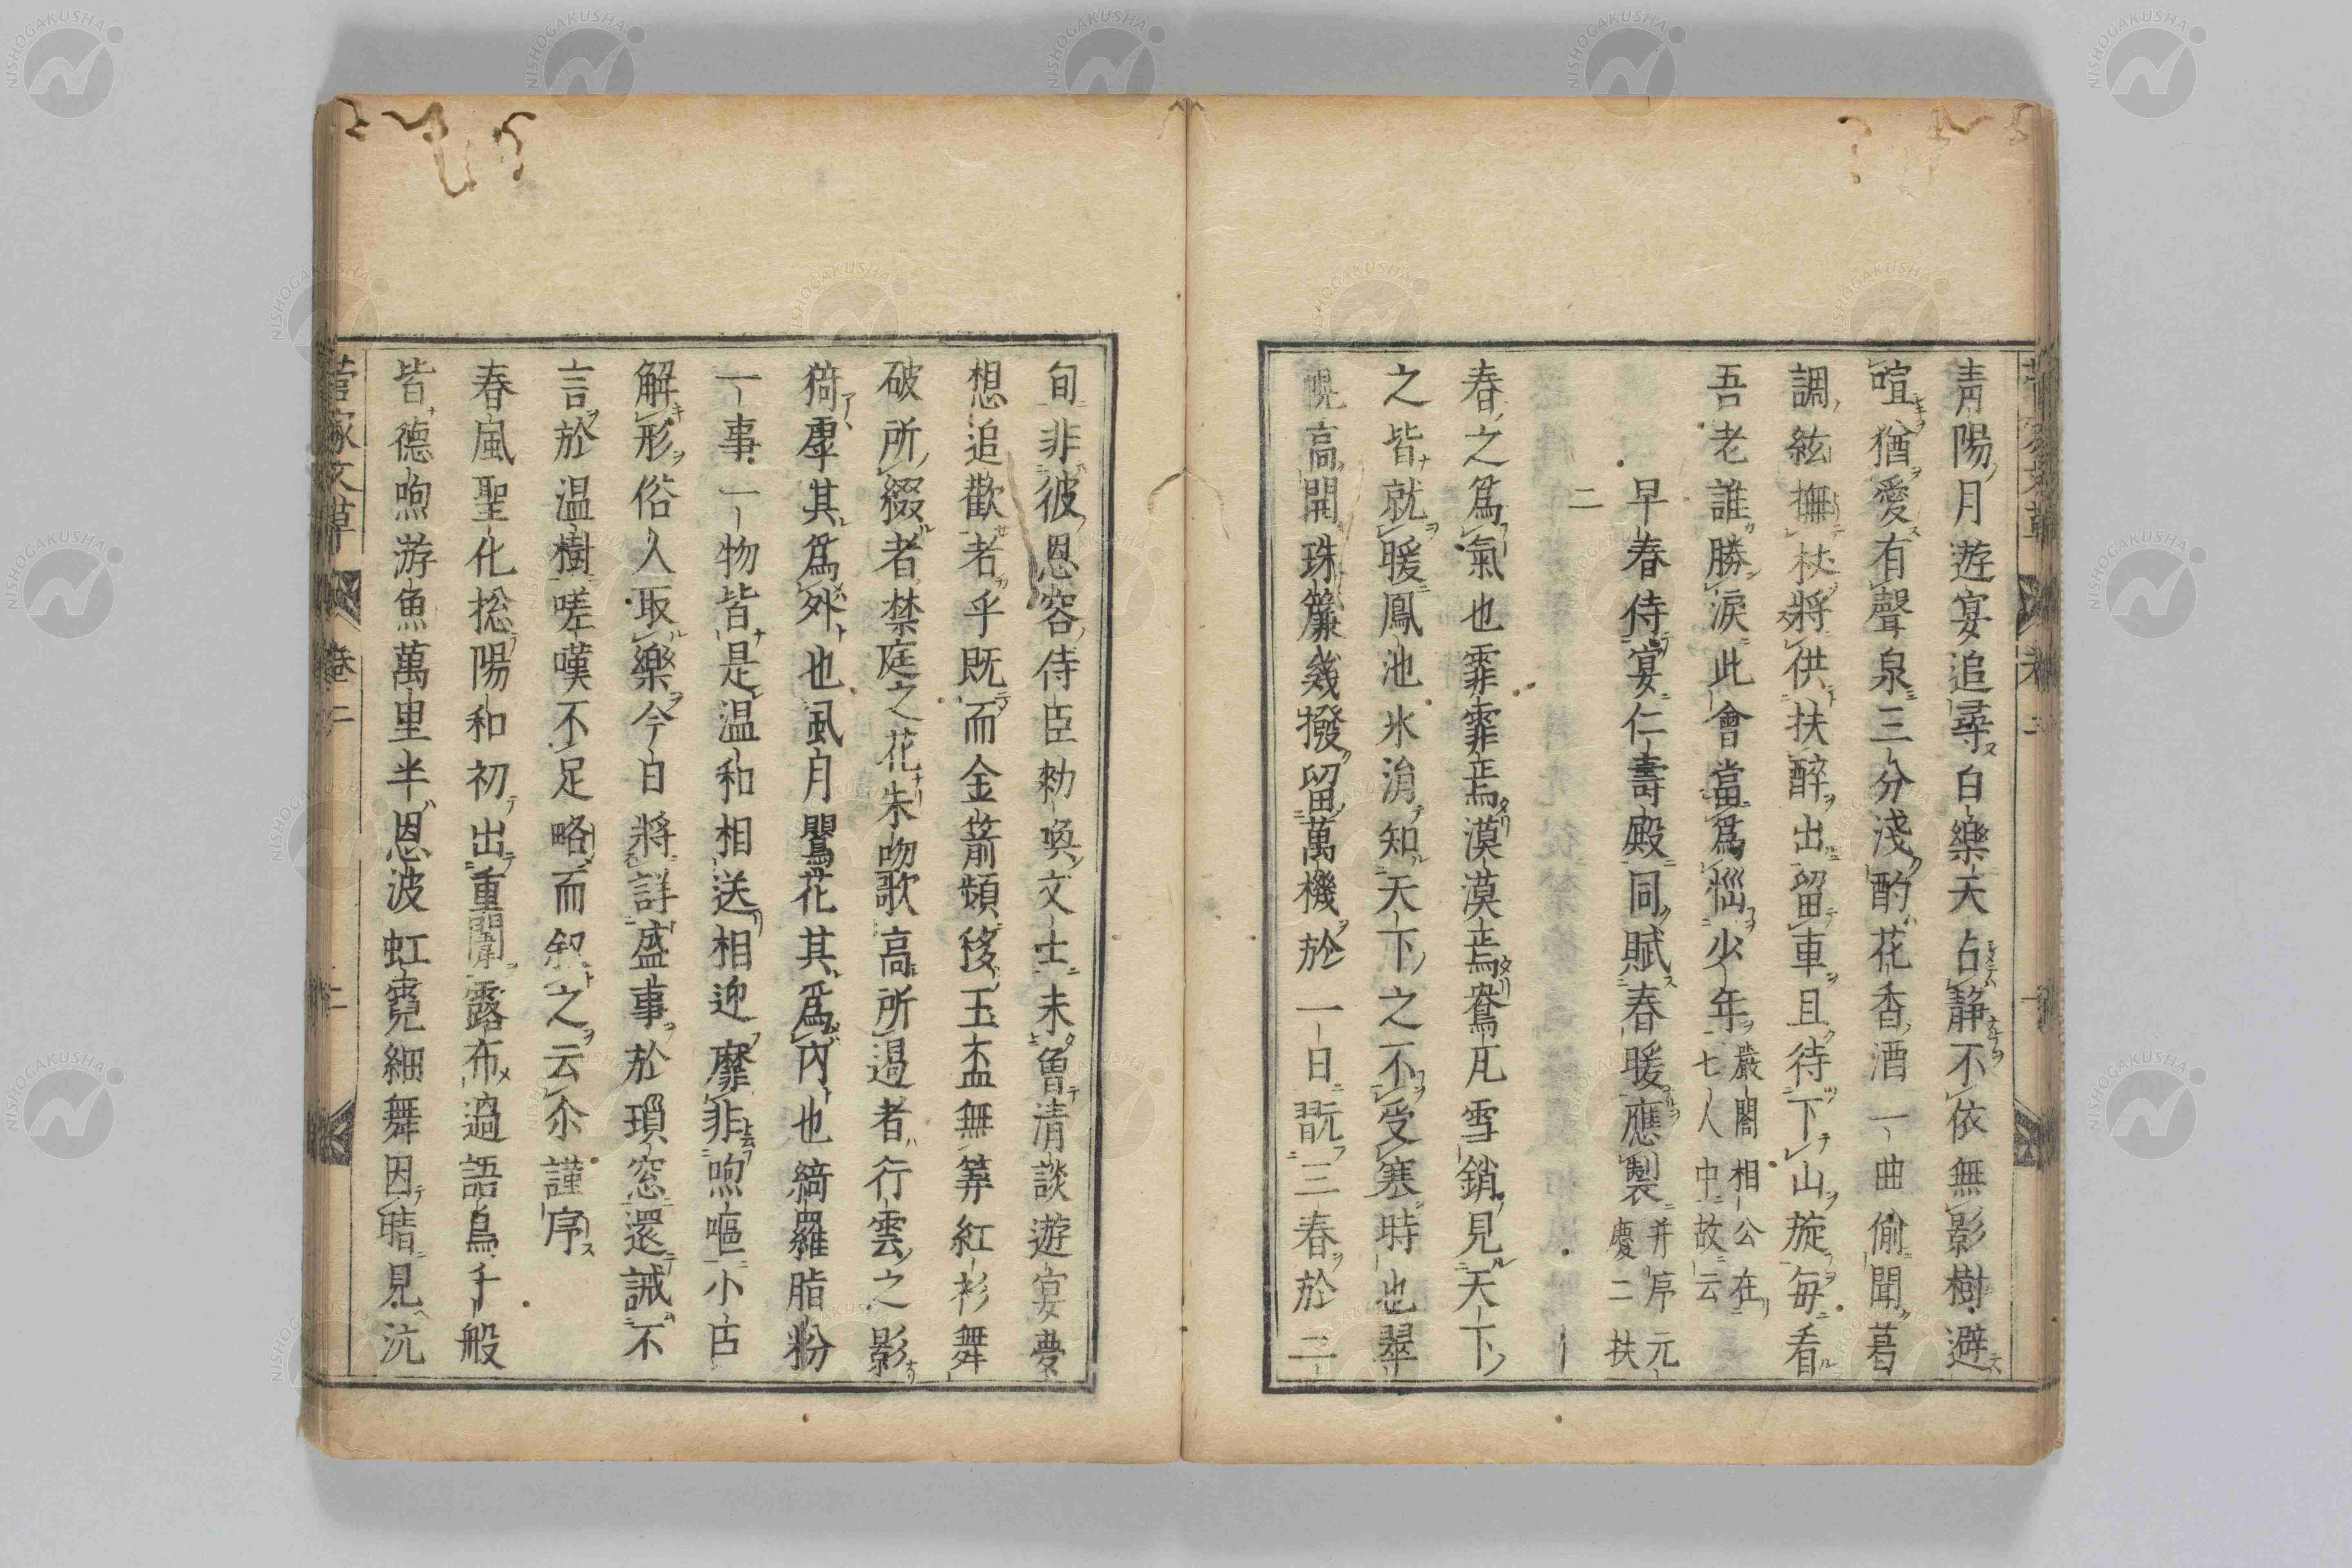 青陽月遊宴追尋白樂天占靜不依無影樹避
喧猶愛有聲泉三分淺酌花香酒一曲偷聞葛
調絃撫杖將供扶醉出留車且待下山旋每看
吾老誰勝淚此會當爲惱少年嚴閤相公在七人中故云
早春侍宴仁壽殿同賦春暖應製并序元慶二扶
二
春之爲氣也霏霏焉漠漠焉鴛瓦雪銷見天下
之皆就暖鳳池氷消知天下之不受寒時也翠
幌高開珠簾幾撥留萬機於一日翫三春於二
旬非彼恩容侍臣勅喚文士未曾清談遊宴夢
想追歡者乎既而金箭頻移玉盃無筭紅衫舞
破所綴者禁庭之花朱吻歌高所遏者行雲之影
猗虖其爲外也風月鸎花其爲内也綺羅脂粉
一事一物皆是温和相送相迎靡非喣嘔小臣
解形俗人取樂今日將詳盛事於瑣窓還誡不
言於温樹嗟嘆不足略而叙之云尒謹序
春風聖化揔陽和初出重闈露布過語鳥千般
皆德喣游魚萬里半恩波虹霓細舞因晴見沆
菅家文草 卷二